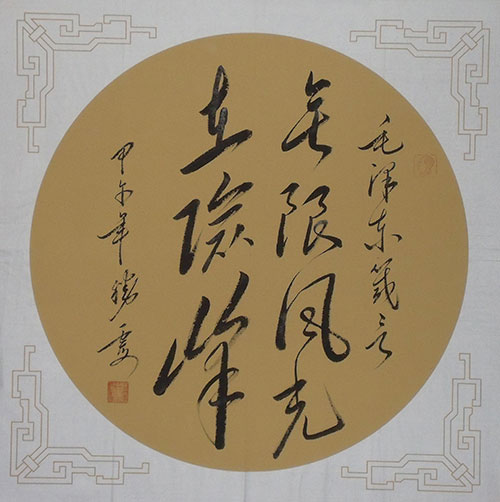 毛泽东箴言
无限风光
在险峰
甲午年